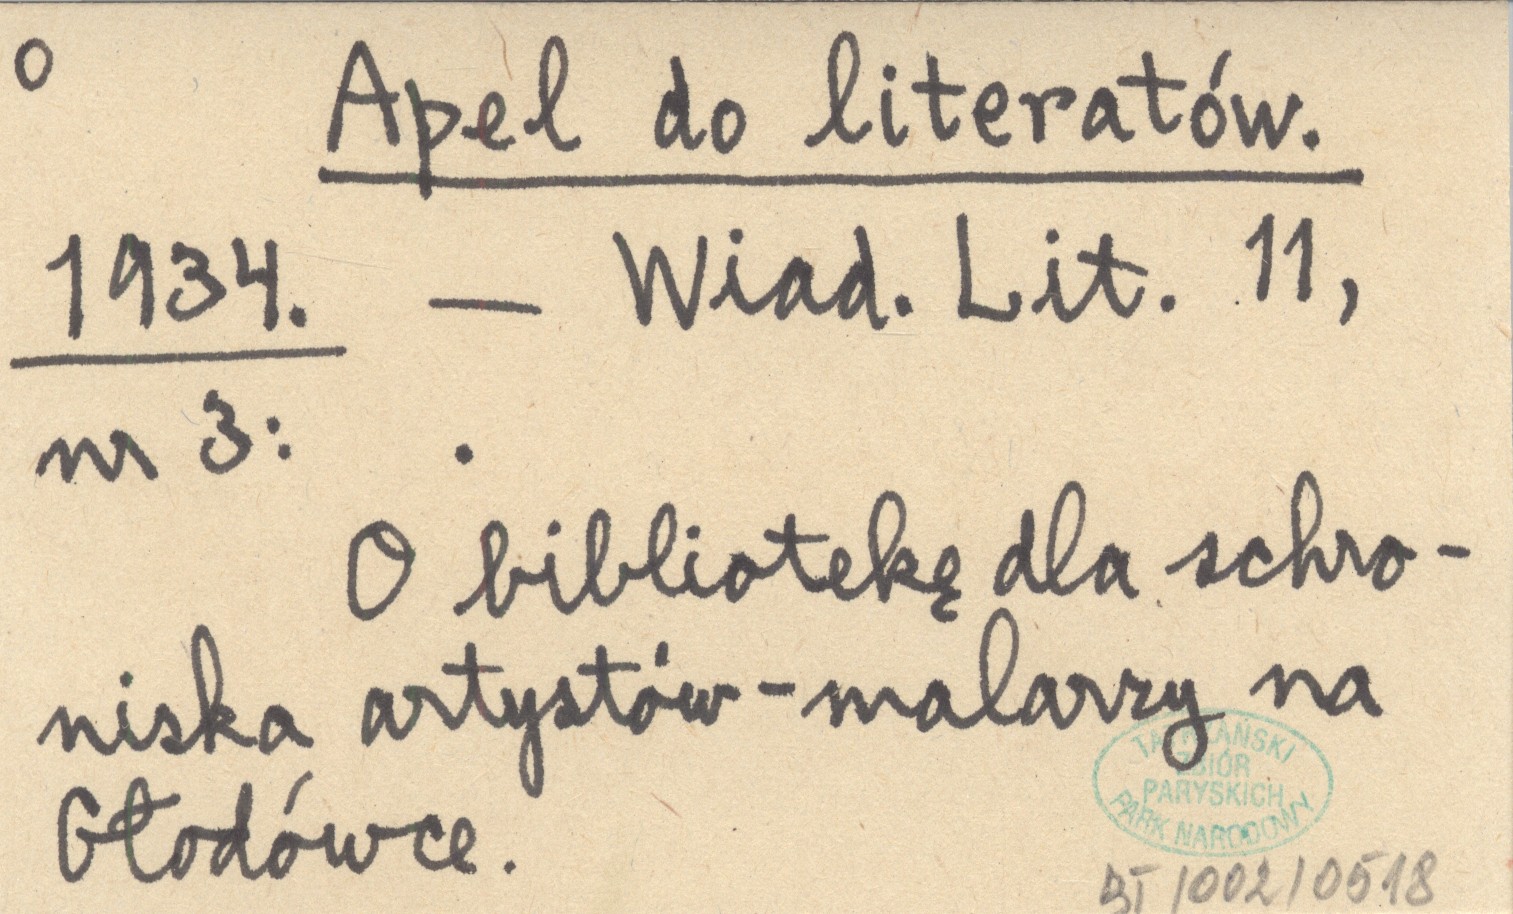 o
Apel do literatów.
1934. — Wiad. Lit. 11,
nr 3: .
O bibliotekę dla schro-
niska artystów-malarzy na
Głodówce.
TATRZAŃSKI
ZBIÓR
PARYSKICH
PARK NARODOWY
BT/002/0518